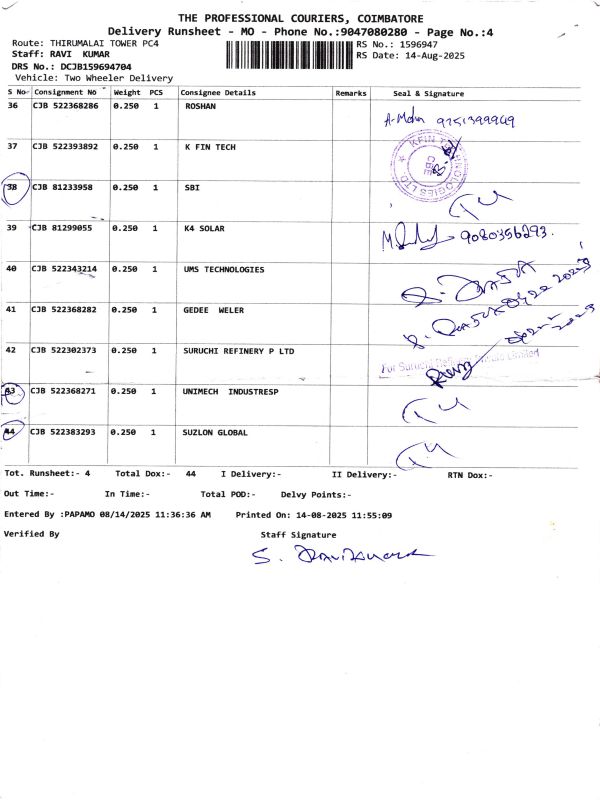 THE PROFESSIONAL COURIERS, COIMBATORE
Delivery Runsheet - MO - Phone No.:9047080280 - Page No.:4
Route: THIRUMALAI TOWER PC4
RS No.: 1596947
Staff: RAVI KUMAR
RS Date: 14-Aug-2025
DRS No.: DCJB159694704
Vehicle: Two Wheeler Delivery
S No Consignment No Weight PCS Consignee Details Remarks Seal & Signature
36 CJB 522368286 0.250 1 ROSHAN
9751399949
37 CJB 522393892 0.250 1 K FIN TECH
KFIN TECHNOLOGIES LTD.
CBE
38 CJB 81233958 0.250 1 SBI
39 CJB 81299055 0.250 1 K4 SOLAR
9080356293.
40 CJB 522343214 0.250 1 UMS TECHNOLOGIES
41 CJB 522368282 0.250 1 GEDEE WELER
42 CJB 522302373 0.250 1 SURUCHI REFINERY P LTD
For Suruchi Refinery Private Limited
43 CJB 522368271 0.250 1 UNIMECH INDUSTRESP
44 CJB 522383293 0.250 1 SUZLON GLOBAL
Tot. Runsheet:- 4 Total Dox:- 44 I Delivery:- II Delivery:- RTN Dox:-
Out Time:- In Time:- Total POD:- Delvy Points:-
Entered By :PAPAMO 08/14/2025 11:36:36 AM Printed On: 14-08-2025 11:55:09
Verified By Staff Signature